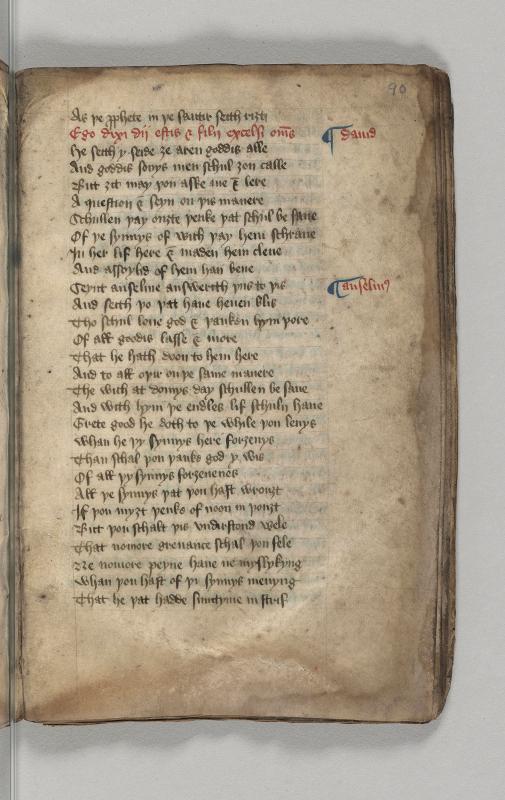 90
As þe pphete in þe sauter seith riȝt
Ego dixi dii estis & filii excelsi om̄s
¶ dauid
He seith y seide ȝe aren goddis alle
And goddis sonys men schul ȝou calle
But ȝit may þou aske me & lere
A question & seyn on þis manere
Schullen þay ouȝte þenke þat schul be saue
Of þe synnys of with þay hem schraue
In her lif here & maden hem clene
And assoylid of hem han bene
Seynt anselme answerith þus to þis
¶ anselmꝰ
And seith þo þat haue heuen blis
Tho schul loue god & þanken hym þore
Of alle goodis lasse & more
That he hath doon to hem here
And to alle oþir on þe same manere
The with at domys day schullen be saue
And with hym þe endles lif schuln haue
Grete good he doth to þe while þou leuys
Whan he þy synnys here forȝeuys
Than schal þou þanke god y wis
Of alle þy synnys forȝeuenes
Alle þe synnys þat þou hast wrouȝt
If þou myȝt þenke of noon in þouȝt
But þou schalt þis vndirstond wele
That nomore greuance schal þou fele
Ne nomore peyne haue ne myslykyng
Whan þou hast of þi synnys menyng
That he þat hadde sumtyme in strif